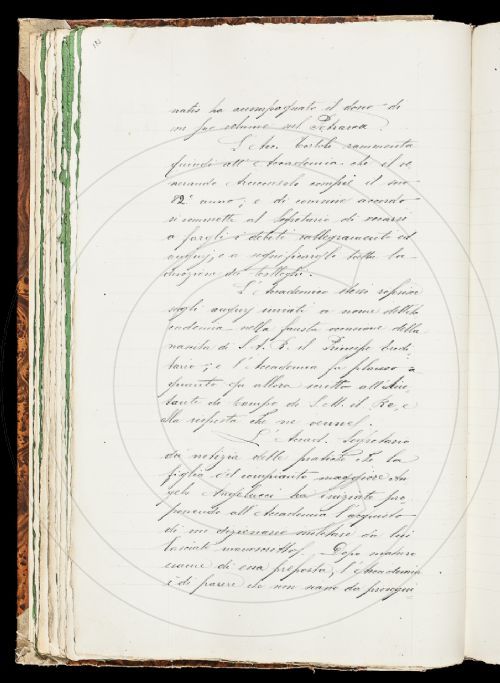 nato ha accompagnato il dono di
un suo volume sul Petrarca.
L'Acc. Tortoli rammenta
quindi all'Accademia che il ve
nerando Arciconsolo compiè il suo
82° anno, e di comune accordo
si commette al Segretario di recarsi
a fargli i debiti rallegramenti ed
auguri, e a significargli tutta la
devozione dei Colleghi.
L'Accademico stesso riferisce
sugli auguri inviati a nome dell'Ac
cademia nella fausta occasione della
nascita di S. A. R. il Principe Eredi
tario; e l'Accademia fa plauso a
quanto fu allora scritto all'Aiu
tante di Campo di S. M. il Re, e
alla risposta che ne venne.
L'Accad. Segretario
dà notizia delle pratiche che la
figlia del compianto maggiore An
gelo Angelucci ha iniziate pro
ponendo all'Accademia l'acquisto
di un dizionario militare da lui
lasciato manoscritto. Dopo maturo
esame di essa proposta, l'Accademia
è di parere che non siano da prosegui